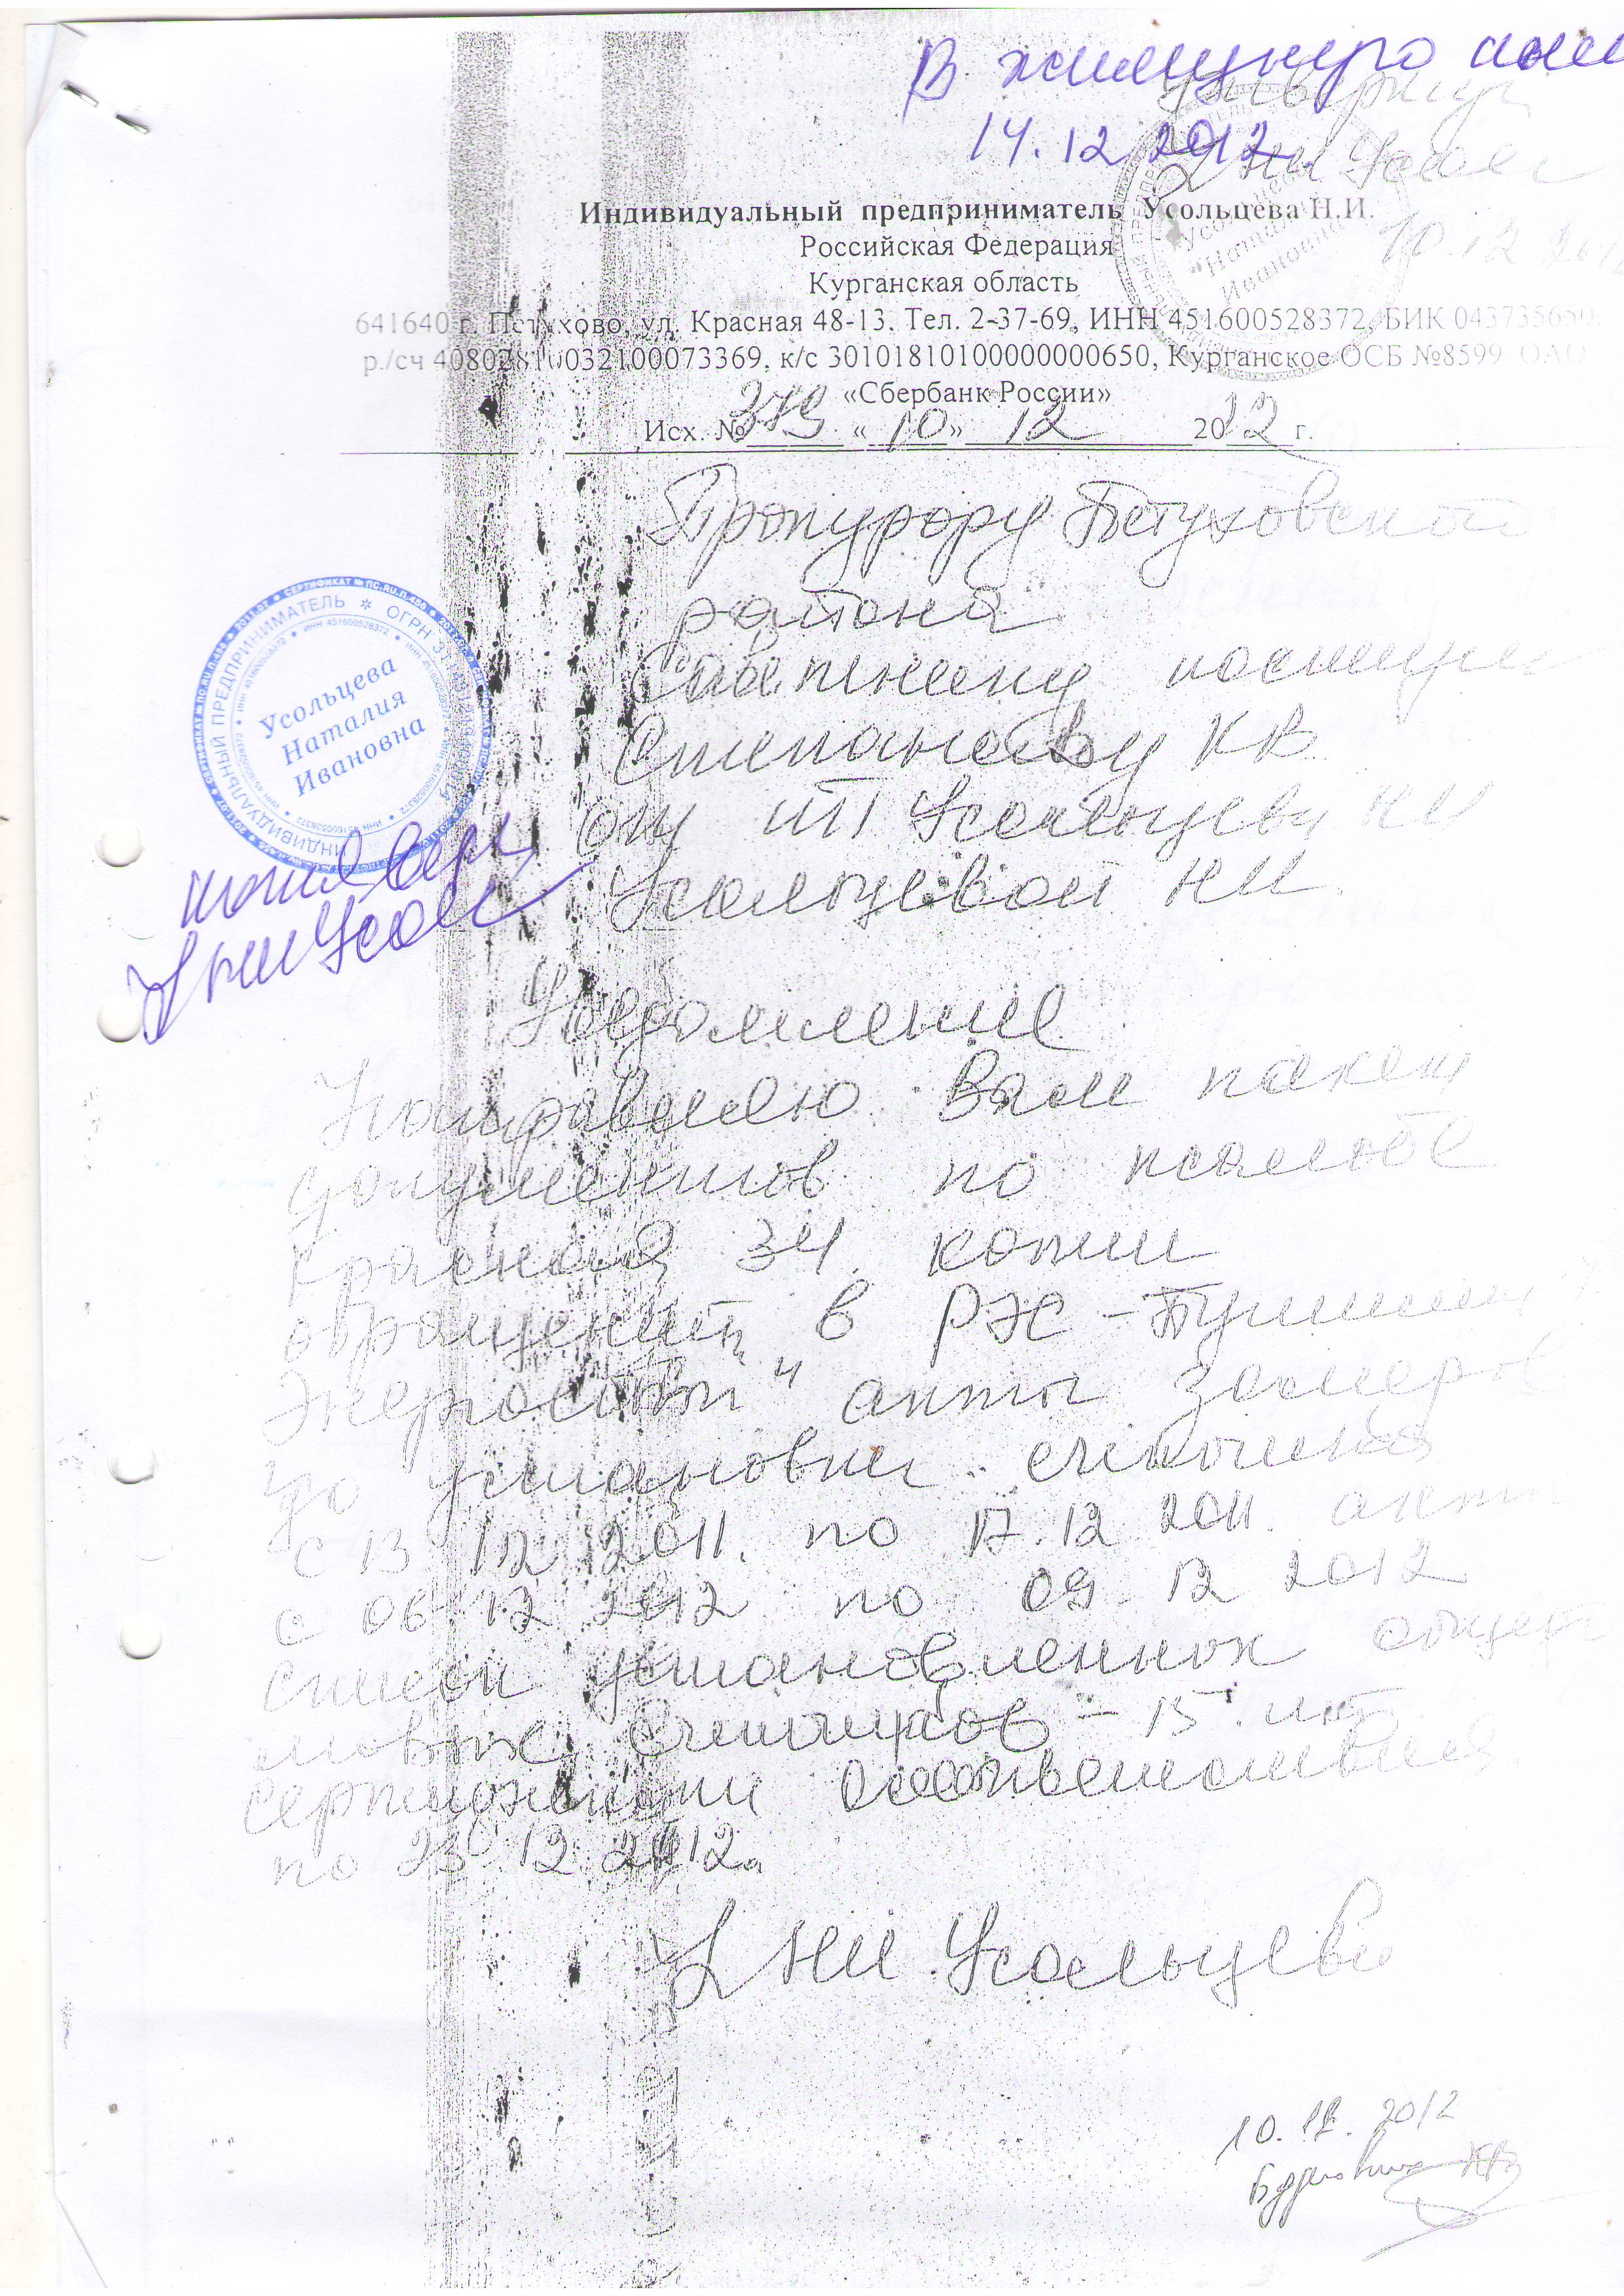 В жилищную
14.12.2012
Индивидуальный предприниматель Усольцева Н.И.
Российская Федерация
Курганская область
641640 г. Петухово, ул. Красная 48-13. Тел. 2-37-69, ИНН 451600528372, БИК 043735650,
р./сч 40802810032100073369, к/с 30101810100000000650, Курганское ОСБ №8599 ОАО
«Сбербанк России»
Исх. № 379 «10» 12 2012 г.
10.12.2012
Прокурору Петуховского
района
юстиции
КВ
ИП Усольцевы НИ
Усольцевой НИ.
ИНДИВИДУАЛЬНЫЙ ПРЕДПРИНИМАТЕЛЬ * ОГРН
ИНН 451600528372
Усольцева
Наталия
Ивановна
копия верн
НИ Усол
Уведомление
Направляю Вам пакет
документов по жалобе
Красная 34. копии
обращений в РЭС
Энергосбыт" акты замеров
до установки счётчиков
с 13 12 2011. по 17.12 2011. акты
с 06 12 2012 по 09.12 2012
список установленных общедо
мовых счетчиков - 15 шт
сертификаты соответствия
по 23 12 2012.
НИ Усольцева
10.12.2012
КВ